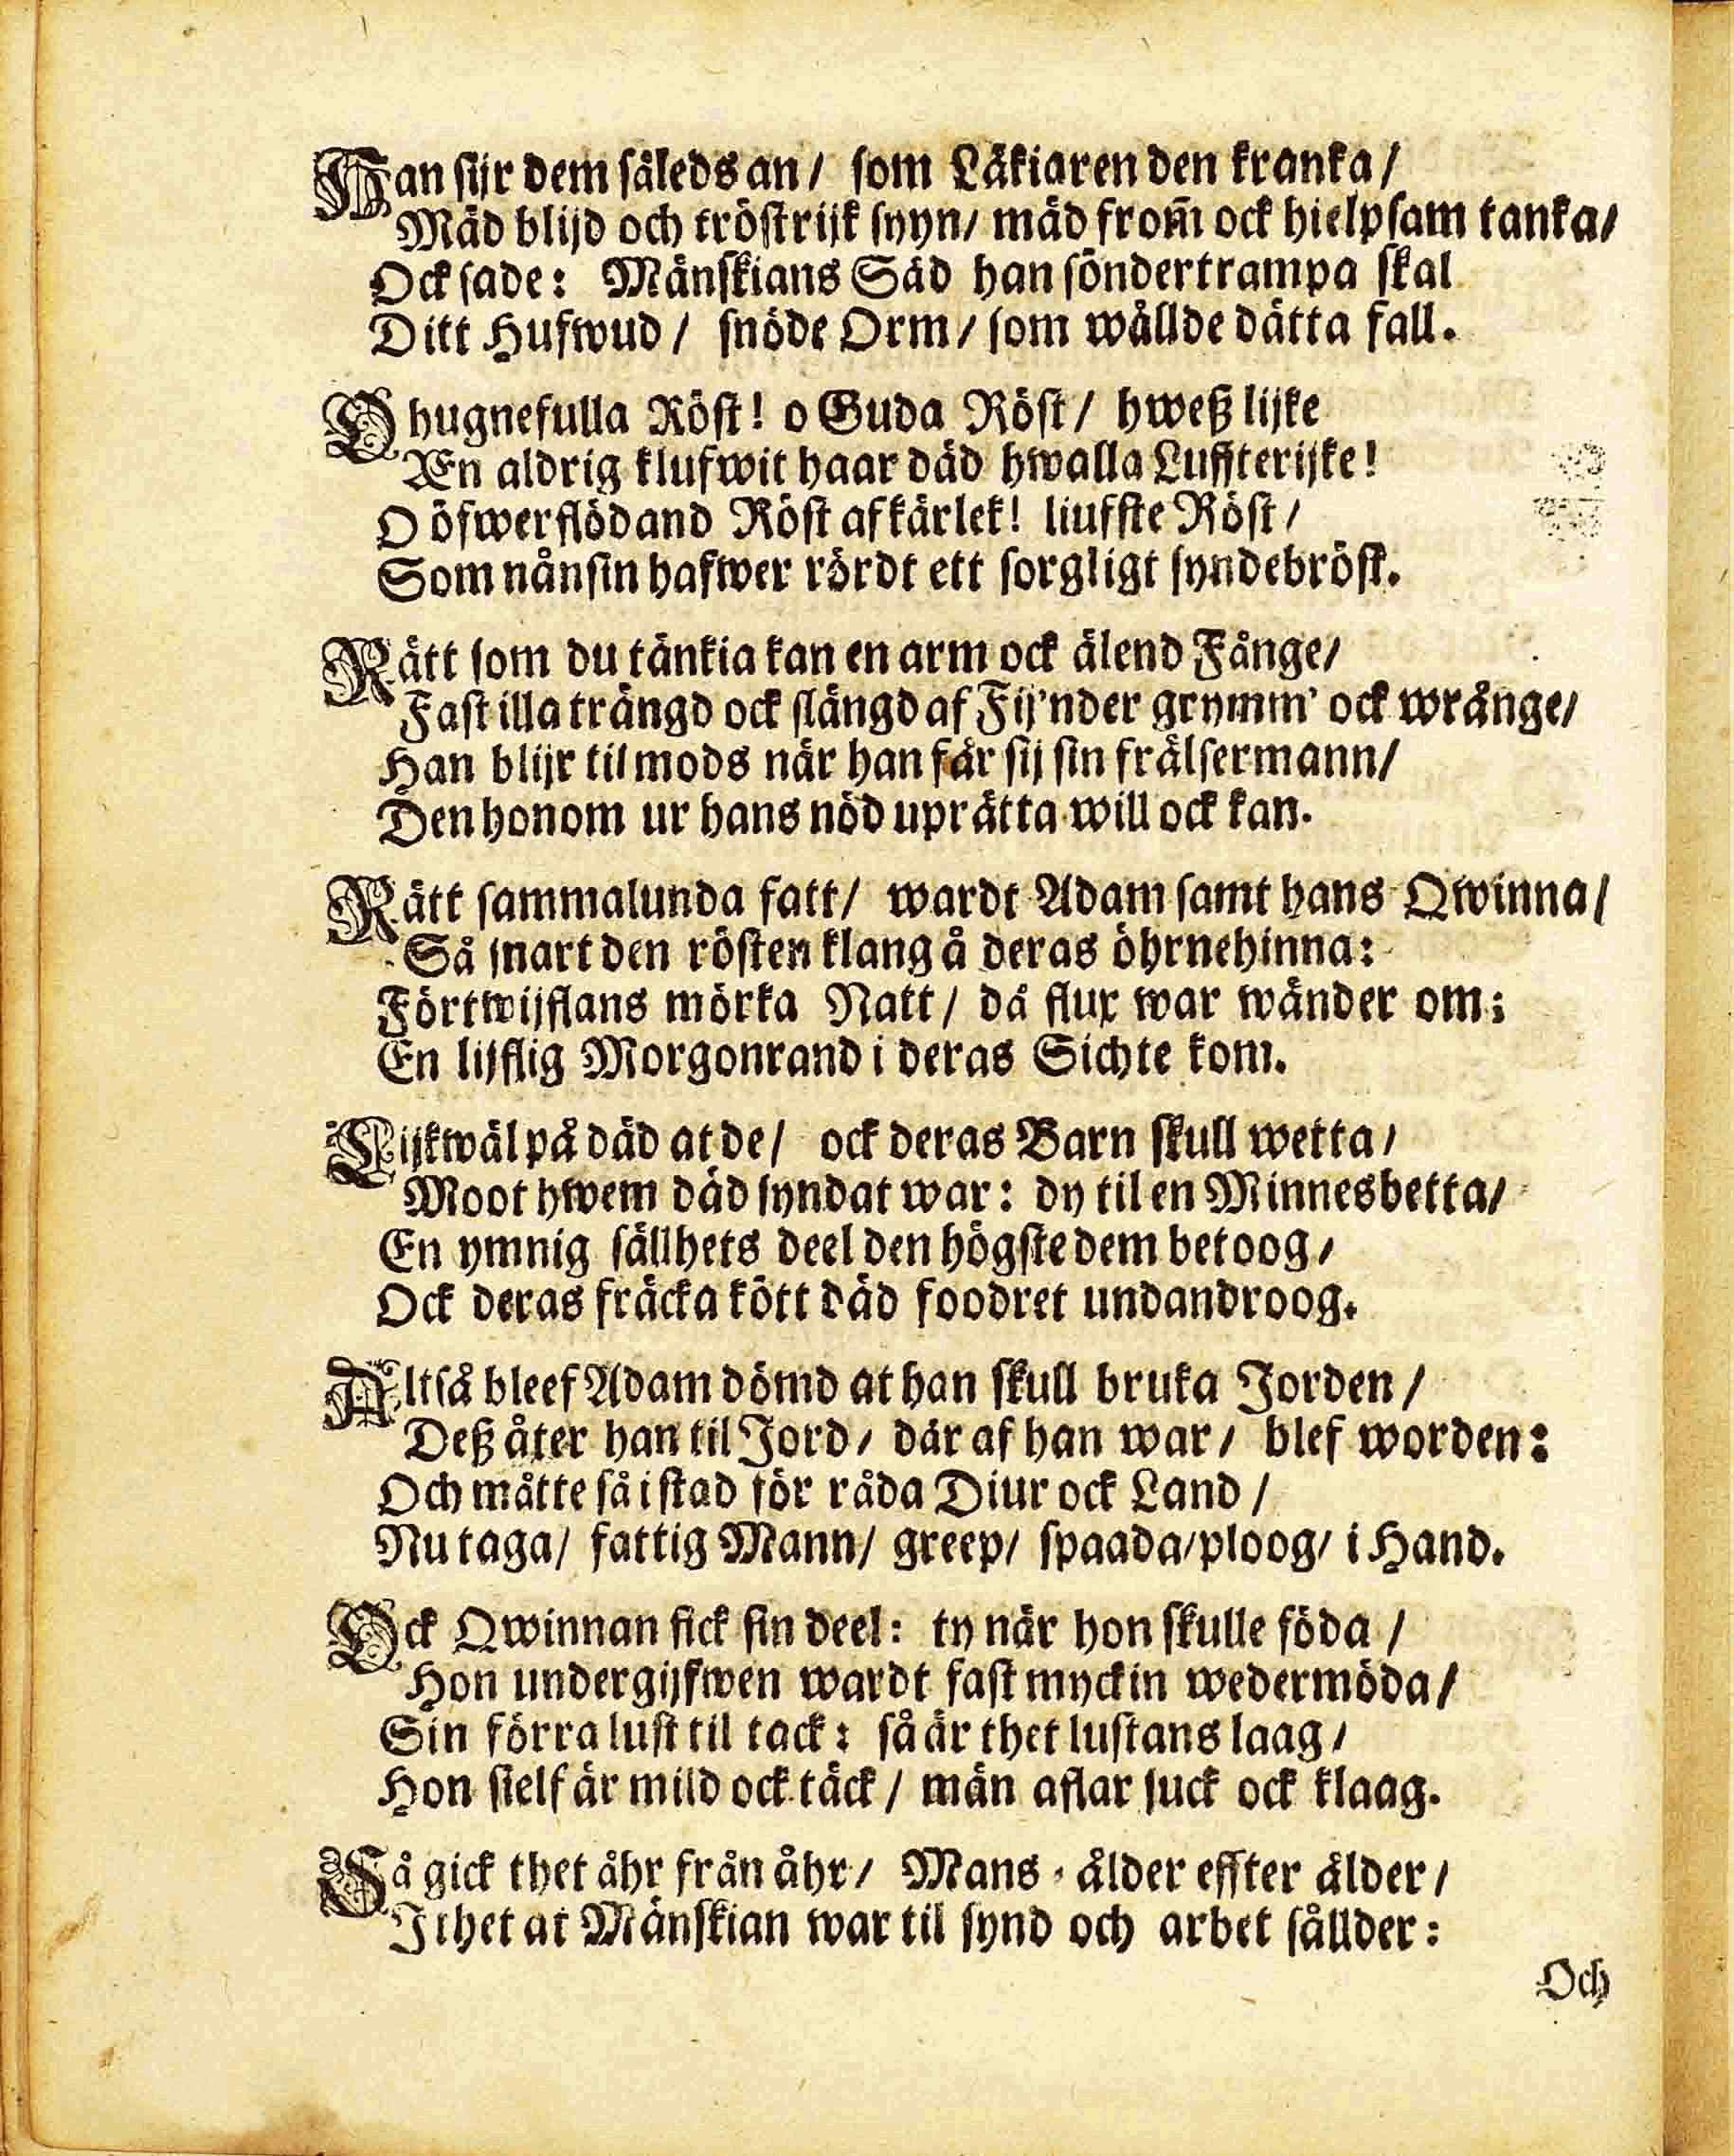 Han sijr dem såleds an/ som Läkiaren den kranka/
Mäd blijd och tröstrijk syyn/ mäd from̃ ock hielpsam tanka/
Ock sade: Mänskians Säd han söndertrampa skal
Ditt Hufwud/ snöde Orm/ som wållde dätta fall.
O hugnefulla Röst! o Guda Röst/ hweß lijke
Æn aldrig klufwit haar däd hwalla Luffterijke!
O öfwerflödand Röst af kärlek! liuffste Röst/
Som nånsin hafwer rördt ett sorgligt syndebröst.
Rätt som du tänkia kan en arm ock älend Fånge/
Fast illa trängd ock slängd af Fij'nder grymm' ock wrånge/
Han blijr til mods når han får sij sin frälsermann/
Den honom ur hans nöd uprätta will ock kan.
Rätt sammalunda fatt/ wardt Adam samt hans Qwinna/
Så snart den rösten klang å deras öhrnehinna:
Förtwijflans mörka Natt/ då flux war wänder om;
En lijflig Morgonrand i deras Sichte kom.
Lijkwäl på däd at de/ ock deras Barn skull wetta/
Moot hwem däd syndat war: dy til en Minnesbetta/
En ymnig sällhets deel den högste dem betoog/
Ock deras fräcka kött däd foodret undandroog.
Altså bleef Adam dömd at han skull bruka Jorden/
Deß åter han til Jord/ där af han war/ blef worden:
Och måtte så i stad för råda Diur ock Land/
Nu taga/ fattig Mann/ greep/ spaada/ ploog/ i Hand.
Ock Qwinnan fick sin deel: ty när hon skulle föda/
Hon undergijfwen wardt fast myckin wedermöda/
Sin förra lust til tack: så är thet lustans laag/
Hon sielf är mild ock täck/ män aflar suck ock klaag.
Så gick thet åhr från åhr/ Mans-ålder effter ålder/
I thet at Mänskian war til synd och arbet sållder:
Och